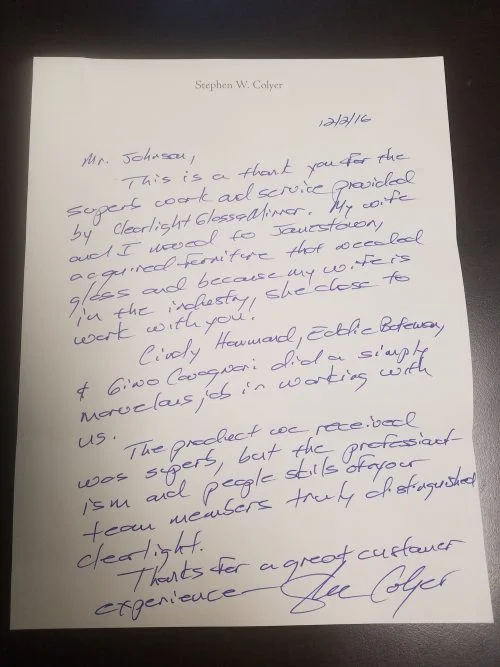 Stephen W. Colyer
12/2/16
Mr. Johnson,
This is a thank you for the
superb work and service provided
by Clearlight Glass & Mirror. My wife
and I moved to Jamestown,
acquired furniture that needed
glass and because my wife is
in the industry, she chose to
work with you.
Cindy Hammond, Eddie
& Gino did a simply
marvelous job in working with
us.
The product we received
was superb, but the professional-
ism and people skills of your
team members truly distinguished
Clearlight.
Thanks for a great customer
experience— Steve Colyer